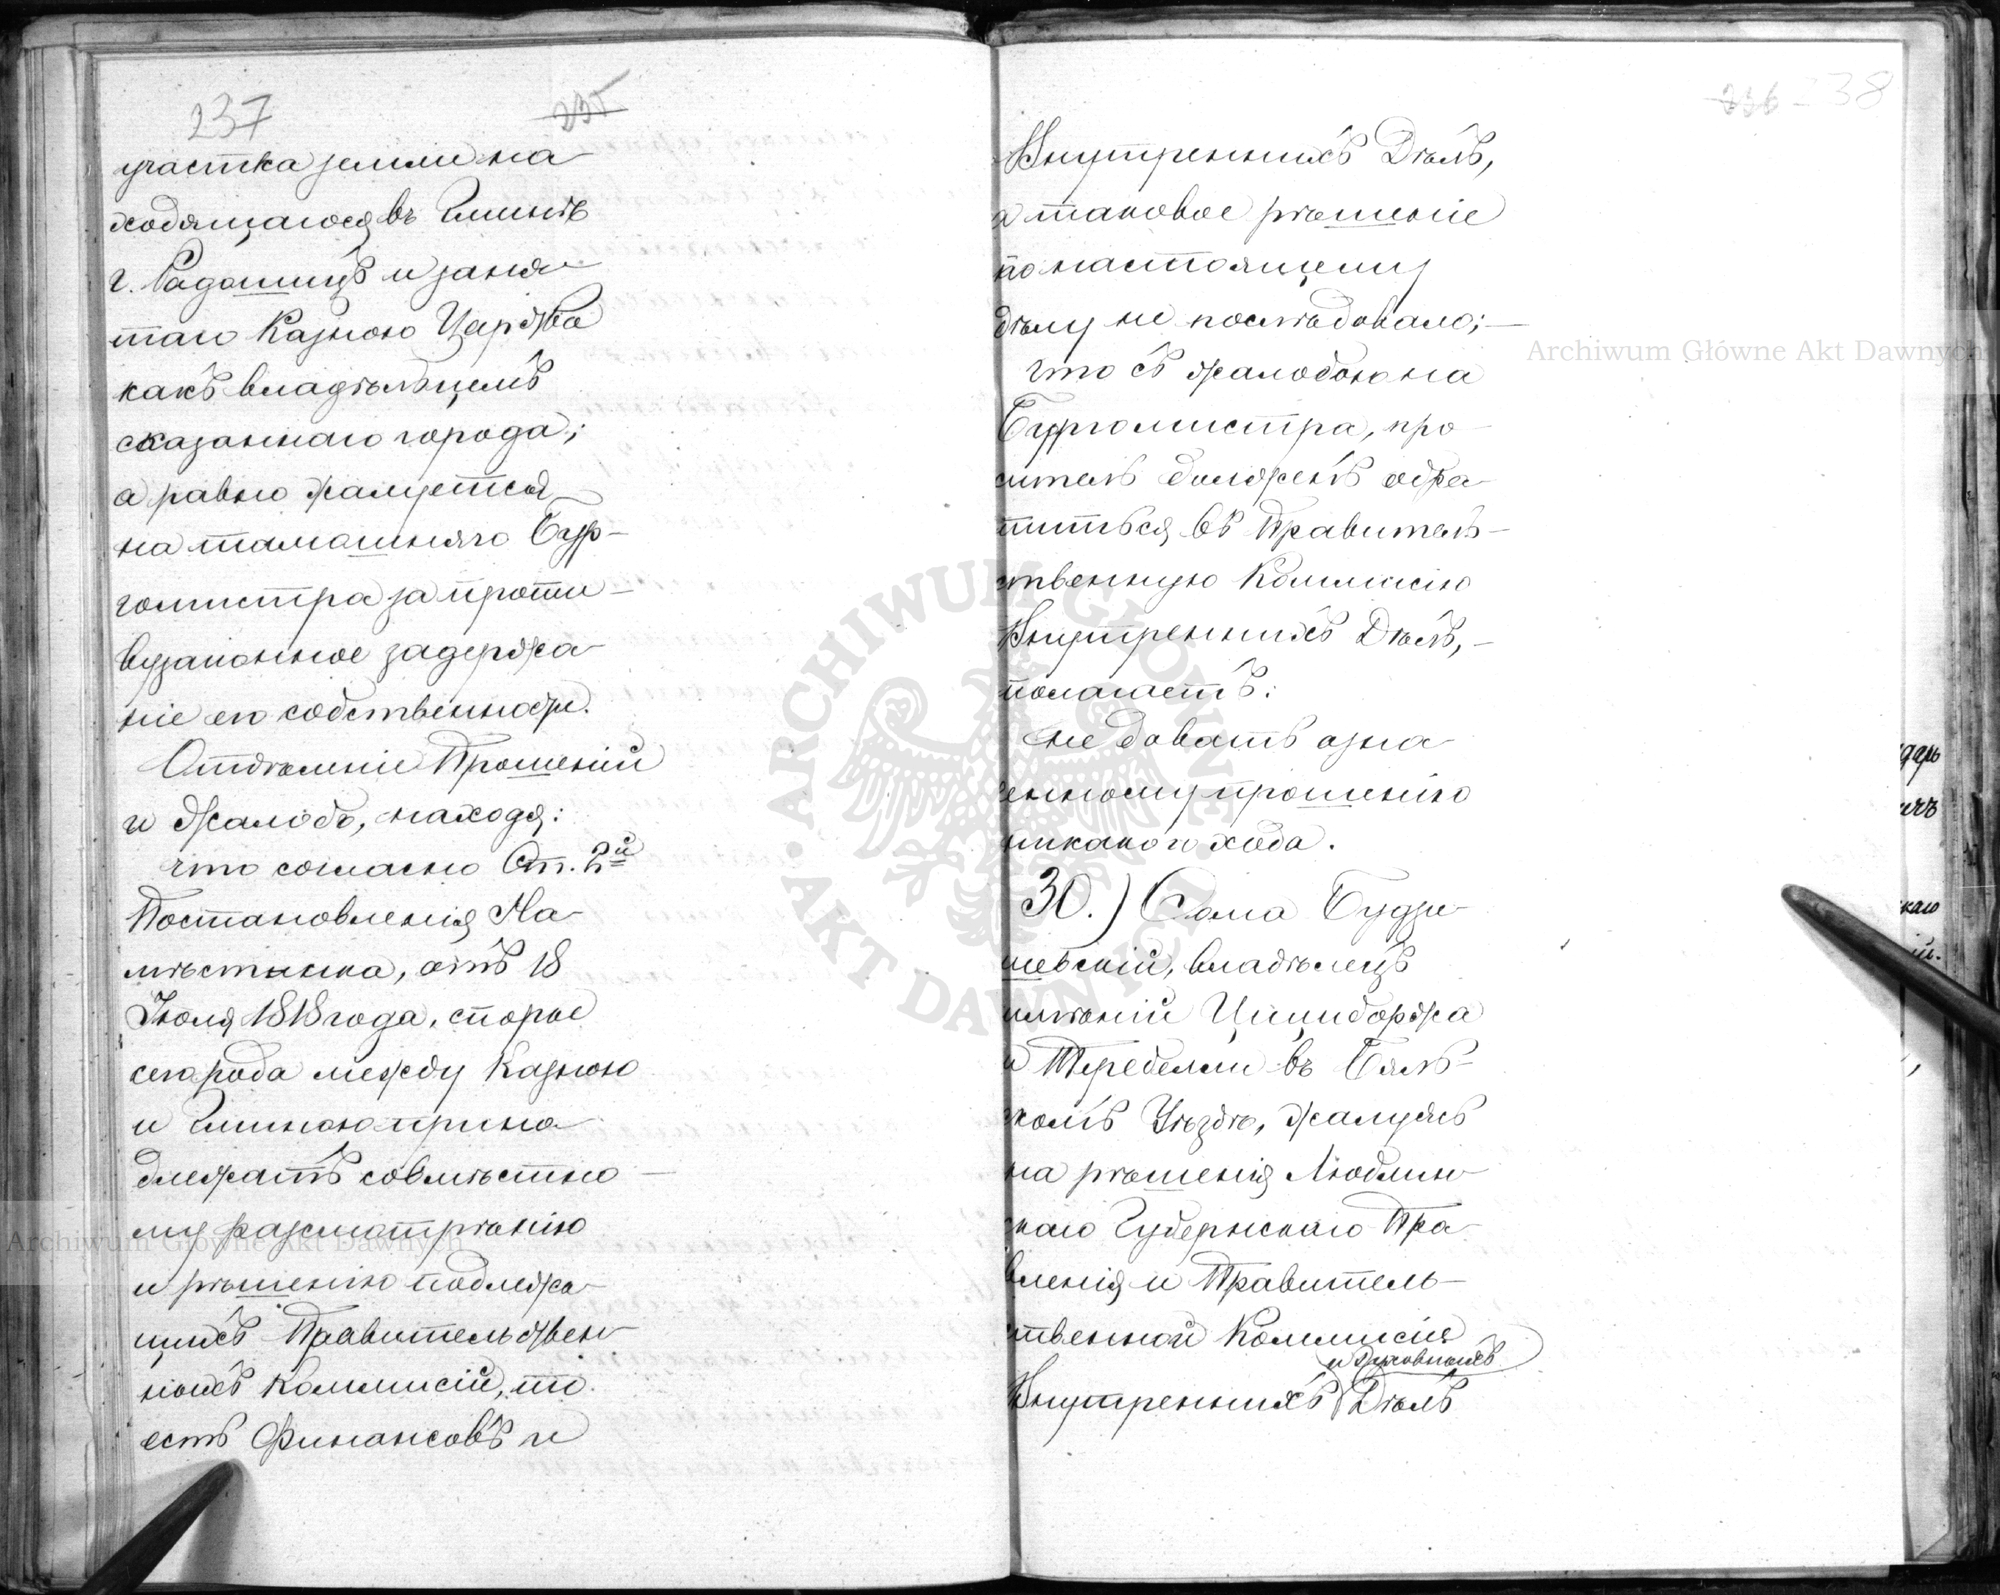 237 235
участка земли на
ходящагося въ Гминѣ
г. Радошицъ и заня
таго Казною Царства
какъ владѣльцемъ
сказаннаго города;
а равно жалуется
на тамошняго Бур-
гомистра за проти-
вузаконное задержа
ніе его собственности.
Отдѣленіе Прошеній
и Жалобъ, находя:
что согласно Ст. 2й
Постановленія На-
мѣстника, отъ 18
Іюля 1818 года, споры
сего рода между Казною
и Гминою прина
длежатъ совмѣстно-
му разсмотрѣнію
и рѣшенію подлежа-
щихъ Правительствен
ныхъ Коммисій, то
есть Финансовъ и
236 238
Внутреннихъ Дѣлъ,
а таковое рѣшеніе
по настоящему
дѣлу не послѣдовало;-
что съ жалобою на
Бургомистра, про-
ситель долженъ обра
титься въ Правитель-
ственную Коммисію
Внутреннихъ Дѣлъ,-
полагаетъ:
не давать озна
ченному прошенію
никакого хода.
30.) Сама Будзи
шевскій, владѣлецъ
имѣній Цициборжа
и Теребелли въ Бяль-
скомъ Уѣздѣ, жалуясь
на рѣшенія Люблин
скаго Губернскаго Пра
вленія и Правитель-
ственной Коммисіи
и Духовныхъ
Внутреннихъ Дѣлъ
Archiwum Główne Akt Dawnych
Archiwum Główne Akt Dawnych
ARCHIWUM GŁÓWNE AKT DAWNYCH